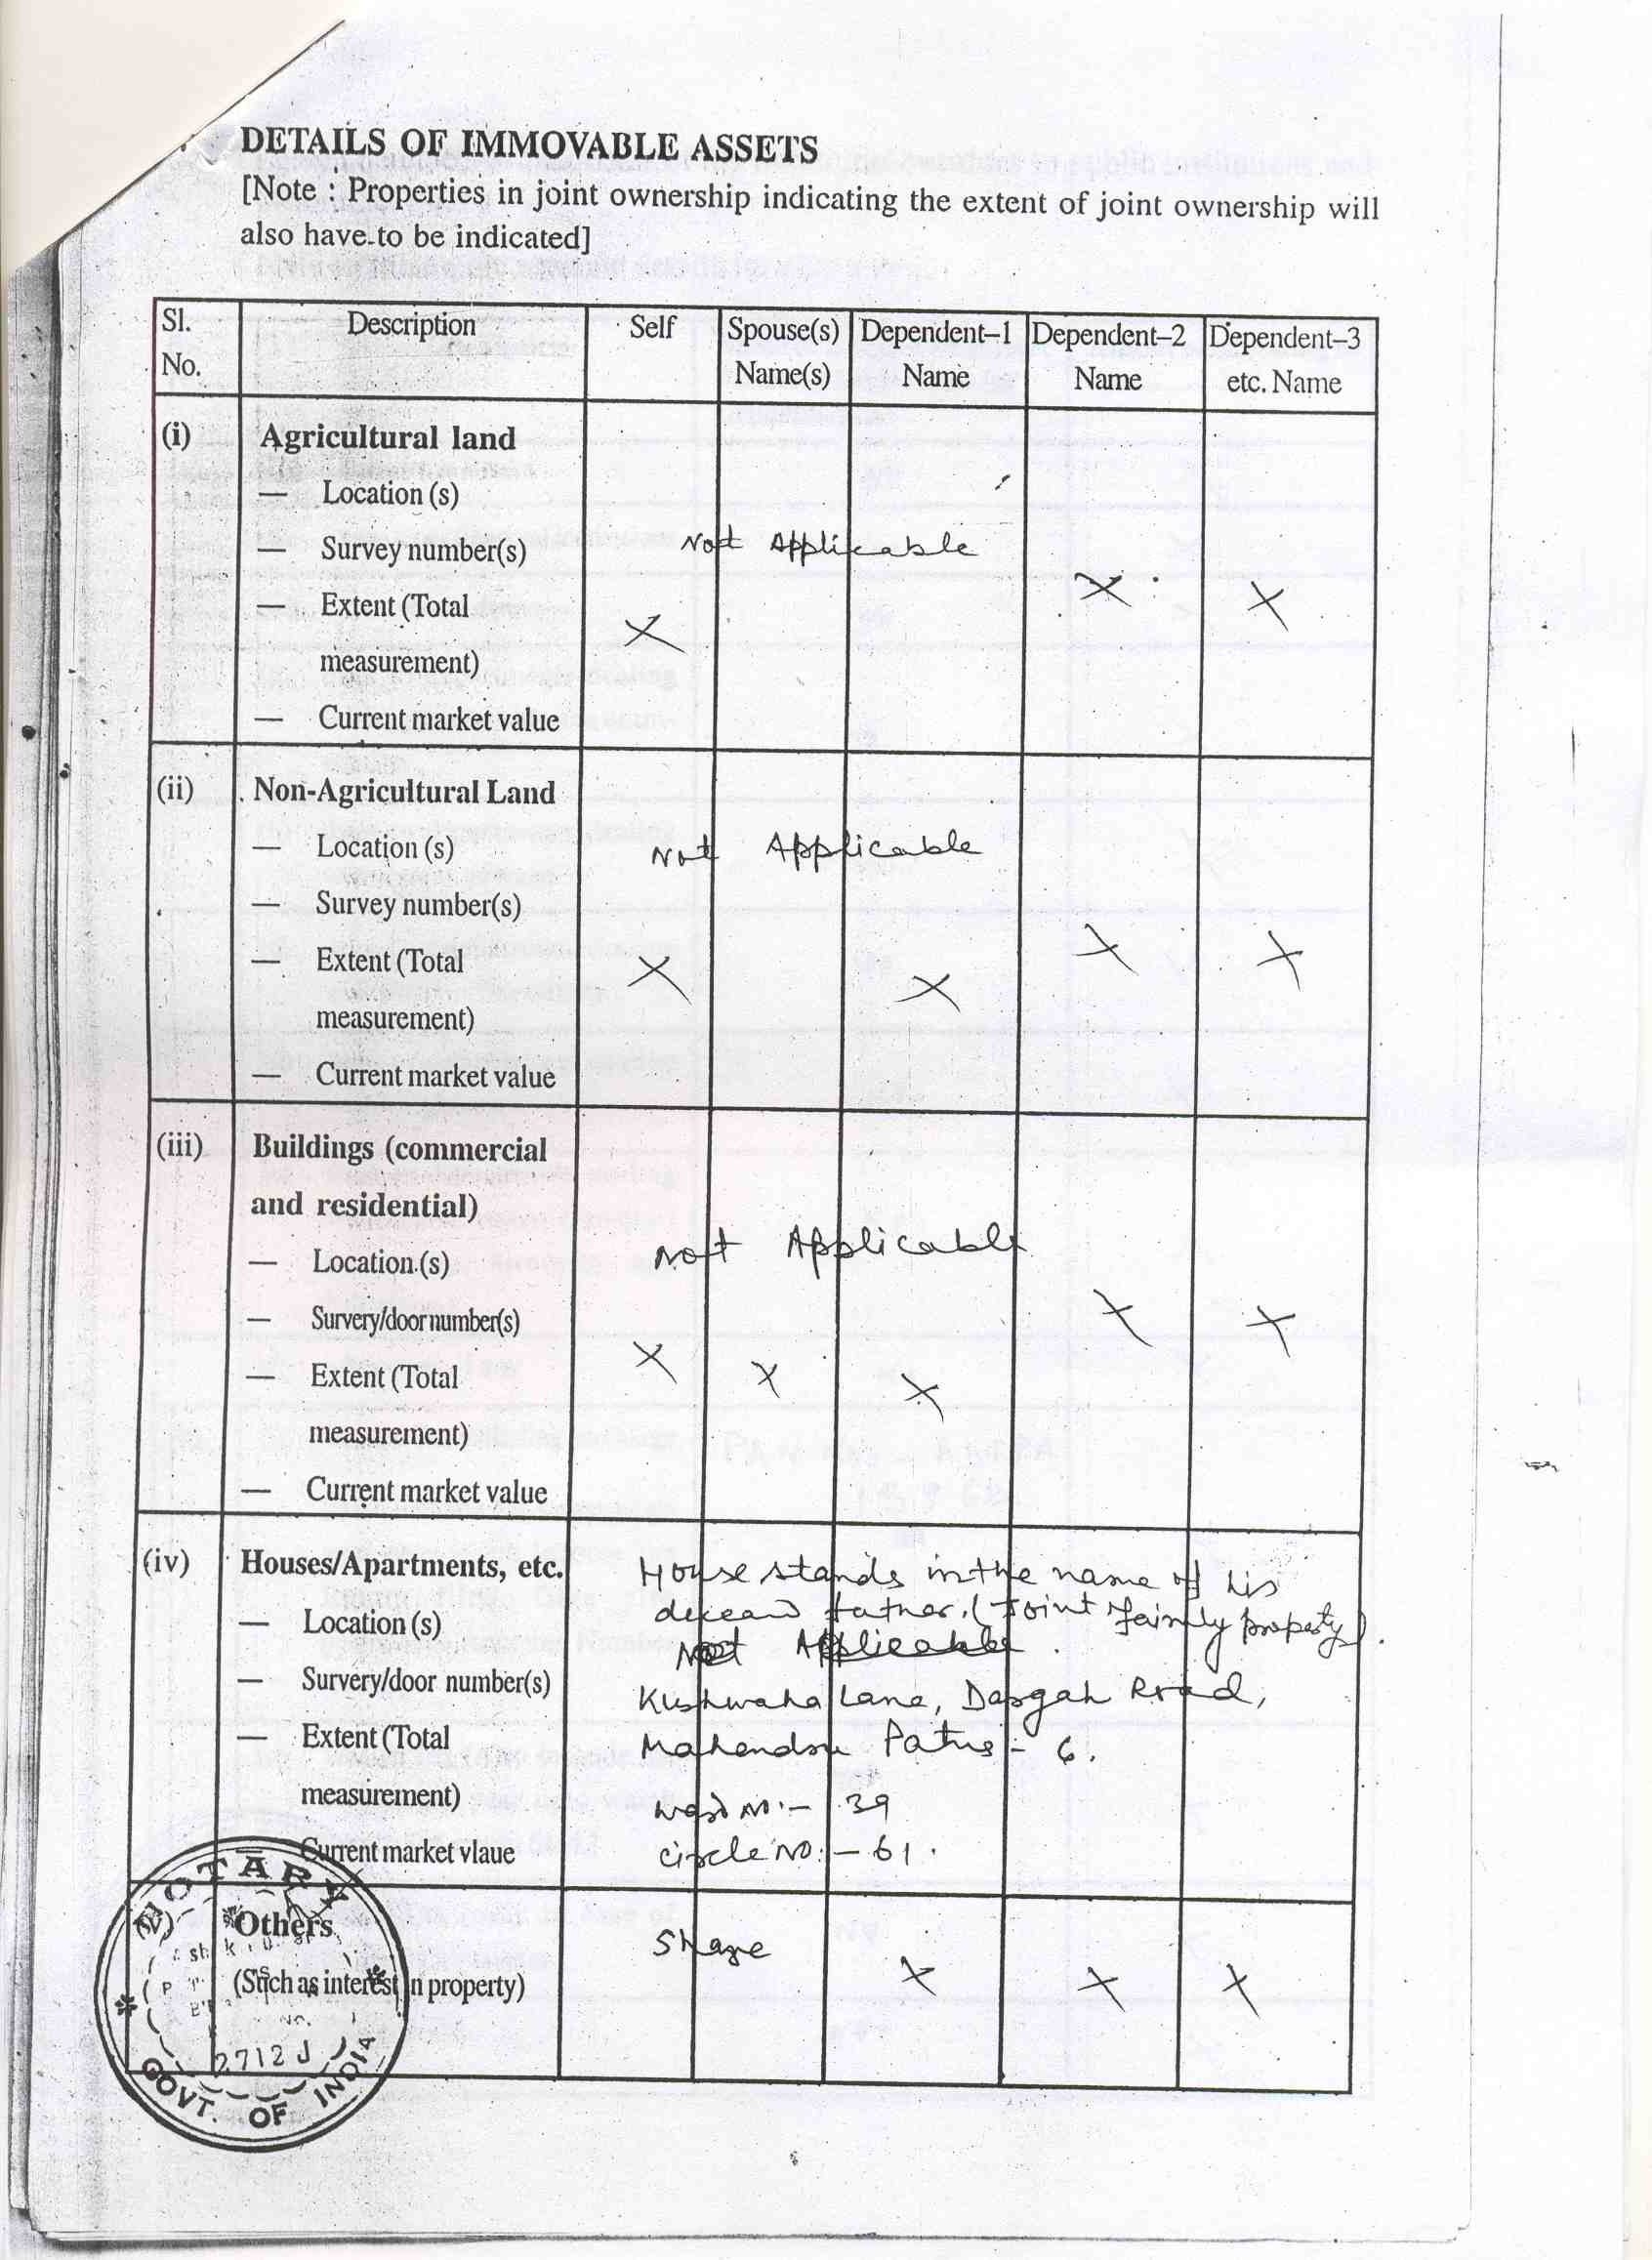 DETAILS OF IMMOVABLE ASSETS
[Note : Properties in joint ownership indicating the extent of joint ownership will
also have to be indicated]
Sl. No. Description Self Spouse(s) Name(s) Dependent–1 Name Dependent–2 Name Dependent–3 etc. Name
(i) Agricultural land
— Location (s)
— Survey number(s) Not Applicable
— Extent (Total X X X
measurement)
— Current market value
(ii) Non-Agricultural Land
— Location (s) Not Applicable
— Survey number(s)
— Extent (Total X X X X
measurement)
— Current market value
(iii) Buildings (commercial
and residential)
— Location (s) Not Applicable
— Survery/door number(s) X X
— Extent (Total X X X
measurement)
— Current market value
(iv) Houses/Apartments, etc. House stands in the name of his
— Location (s) father. (Joint family property).
Not Applicable
— Survery/door number(s) Kushwaha Lane, Dargah Road,
— Extent (Total Mahendru Patna - 6.
measurement) Ward No. - 39
Current market vlaue circle No. - 61.
(v) Others Share
(Such as interest in property) X X X
NOTARY
2712 J
GOVT. OF INDIA